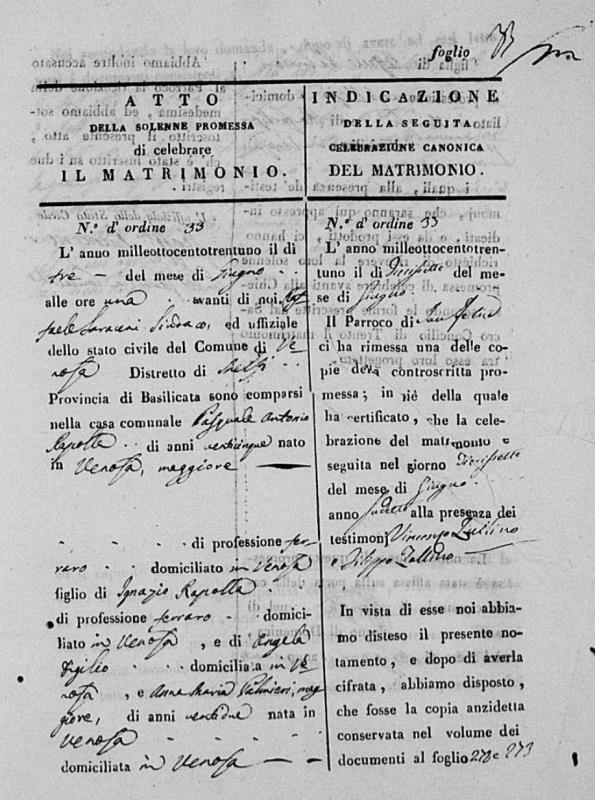 foglio 33
ATTO
DELLA SOLENNE PROMESSA
di celebrare
IL MATRIMONIO.
N.º d'ordine 33
L'anno milleottocentotrentuno il dì
tre — del mese di Giugno
alle ore una avanti di noi Raf-
faele Saraceni Sindaco, ed uffiziale
dello stato civile del Comune di Ve-
nosa Distretto di Melfi
Provincia di Basilicata sono comparsi
nella casa comunale Pasquale Antonio
Rapolla di anni venticinque nato
in Venosa, maggiore
di professione fer-
raro domiciliato in Venosa
figlio di Ignazio Rapolla
di professione ferraro domici-
liato in Venosa, e di Angela
Sigilio domiciliata in Ve-
nosa, e Anna Maria Palmieri, mag-
giore, di anni ventidue nata in
Venosa
domiciliata in Venosa
INDICAZIONE
DELLA SEGUITA
CELEBRAZIONE CANONICA
DEL MATRIMONIO.
N.º d'ordine 33
L'anno milleottocentotren-
tuno il dì Diecisette del me-
se di Giugno
Il Parroco di San Felice
ci ha rimessa una delle co-
pie della controscritta pro-
messa; in piè della quale
ha certificato, che la cele-
brazione del matrimonio è
seguita nel giorno Diecisette
del mese di Giugno
anno sudetto alla presenza dei
testimonj Vincenzo Zullino
e Filippo Zullino
In vista di esse noi abbia-
mo disteso il presente no-
tamento, e dopo di averla
cifrata, abbiamo disposto,
che fosse la copia anzidetta
conservata nel volume dei
documenti al foglio 272 e 273